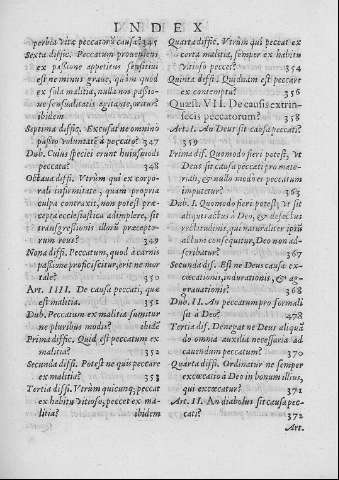 INDEX
perbia vitæ peccatorū causa? 345
Sexta diffic. Peccatum proueniens
ex passione appetitus sensitiui
est ne minus graue, quàm quod
ex sola malitia, nulla nos passio-
ne sensualitatis agitante, oratur?
ibidem
Septima diffic. Excusat ne omninò
passio voluntatē a peccato? 347
Dub. Cuius speciei erunt huiusmodi
peccata? 348
Octaua diffi. Vtrùm qui ex corpo-
rali infirmitate, quam propria
culpa contraxit, non potest præ-
cepta ecclesiastica adimplere, sit
transgressionis illorū præcepto-
rum reus? 349
Nona diffi. Peccatum, quod à carnis
passione proficiscitur, erit ne mor-
tale? 350
Art. IIII. De causa peccati, quæ
est malitia. 351
Dub. Peccatum ex malitia sumitur
ne pluribus modis? ibidē
Prima diffic. Quid est peccatum ex
malitia? 352
Secunda diffi. Potest ne quis peccare
ex malitia? 353
Tertia diffi. Vtrùm quicunq; peccat
ex habitu vitioso, peccet ex ma-
litia? ibidem
Quarta diffic. Vtrùm qui peccat ex
certa malitia, semper ex habitu
vitioso peccet? 354
Quinta diffi. Quidnam est peccare
ex contemptu? 356
Quæst. VII. De causis extrin-
secis peccatorum? 358
Art. I. An Deus sit causa peccati?
359
Prima dif. Quomodo fieri potest, vt
Deus sit causa peccati pro mate-
riali, & nullo modo ei peccatum
imputetur? 363
Dub. I. Quomodo fieri potest, vt sit
aliquis actus à Deo, & defectus
rectitudinis, qui naturaliter ipsū
actum consequitur, Deo non ad-
scribatur? 367
Secunda dif. Est ne Deus causa ex-
cæcationis, indurationis, & ag-
grauationis? 368
Dub. II. An peccatum pro formali
sit à Deo? 478
Tertia dif. Denegat ne Deus aliquā-
do omnia auxilia necessaria ad
cauendum peccatum? 370
Quarta diffi. Ordinatur ne semper
excæcatio à Deo in bonum illius,
qui excæcatur? 371
Art. II. An diabolus sit causa pec-
cati? 372
Art.